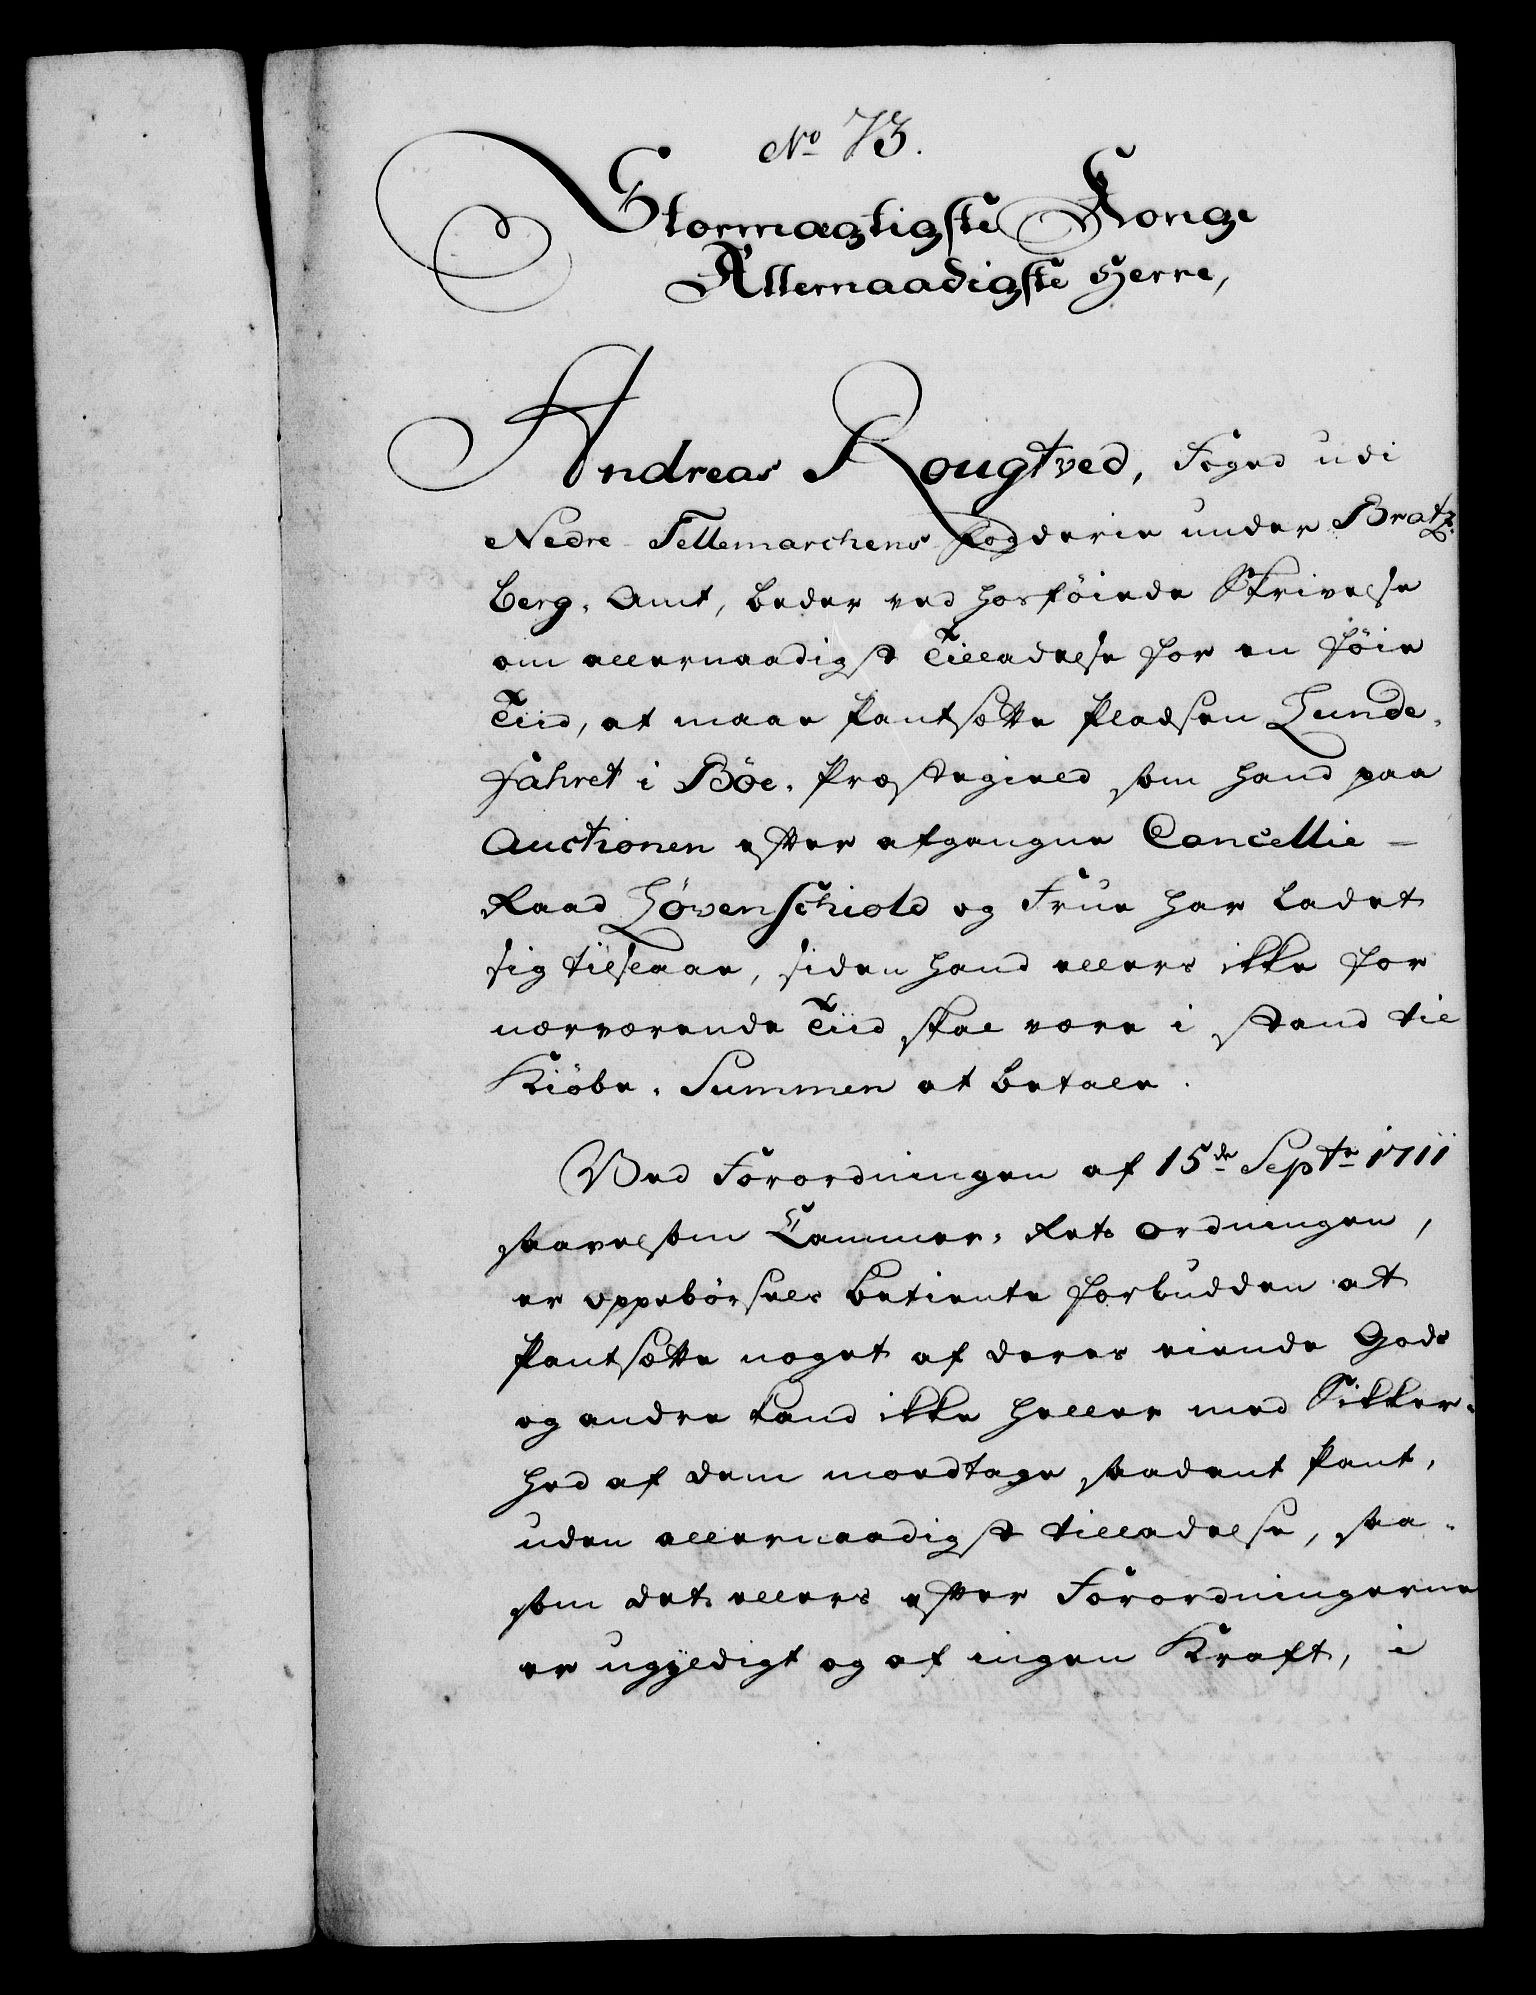 No 73.
Stormægtigste Konge
Allernaadigste Herre,
Andreas Rougtved, Foged udi
Nedre Tellemarchens Fogderie under Bratz-
berg-Amt, beder ved hosföiede Skrivelse
om allernaadigst Tilladelse for en föie
Tiid, at maae Pantsætte Pladsen Lunde-
fahret i Böe-Præstegield som hand paa
Auctionen efter afgangne Cancellie-
Raad Løvenschiold og Frue har ladet
sig tilslaae, siden hand ellers ikke for
nærværende Tiid skal være i stand til
Kiöbe-Summen at betale.
Ved Forordningen af 15de Septr 1711
saavelsom Cammer-Rets ordningen,
er oppebörsels betiente forbudden at
Pantsætte noget af deres eiende Gods
og andre kand ikke heller med Sikker-
hed af dem modtage saadant Pant,
uden allernaadigst tilladelse, saa-
som det ellers efter Forordningerne
er ugyldigt og af ingen Kraft, i